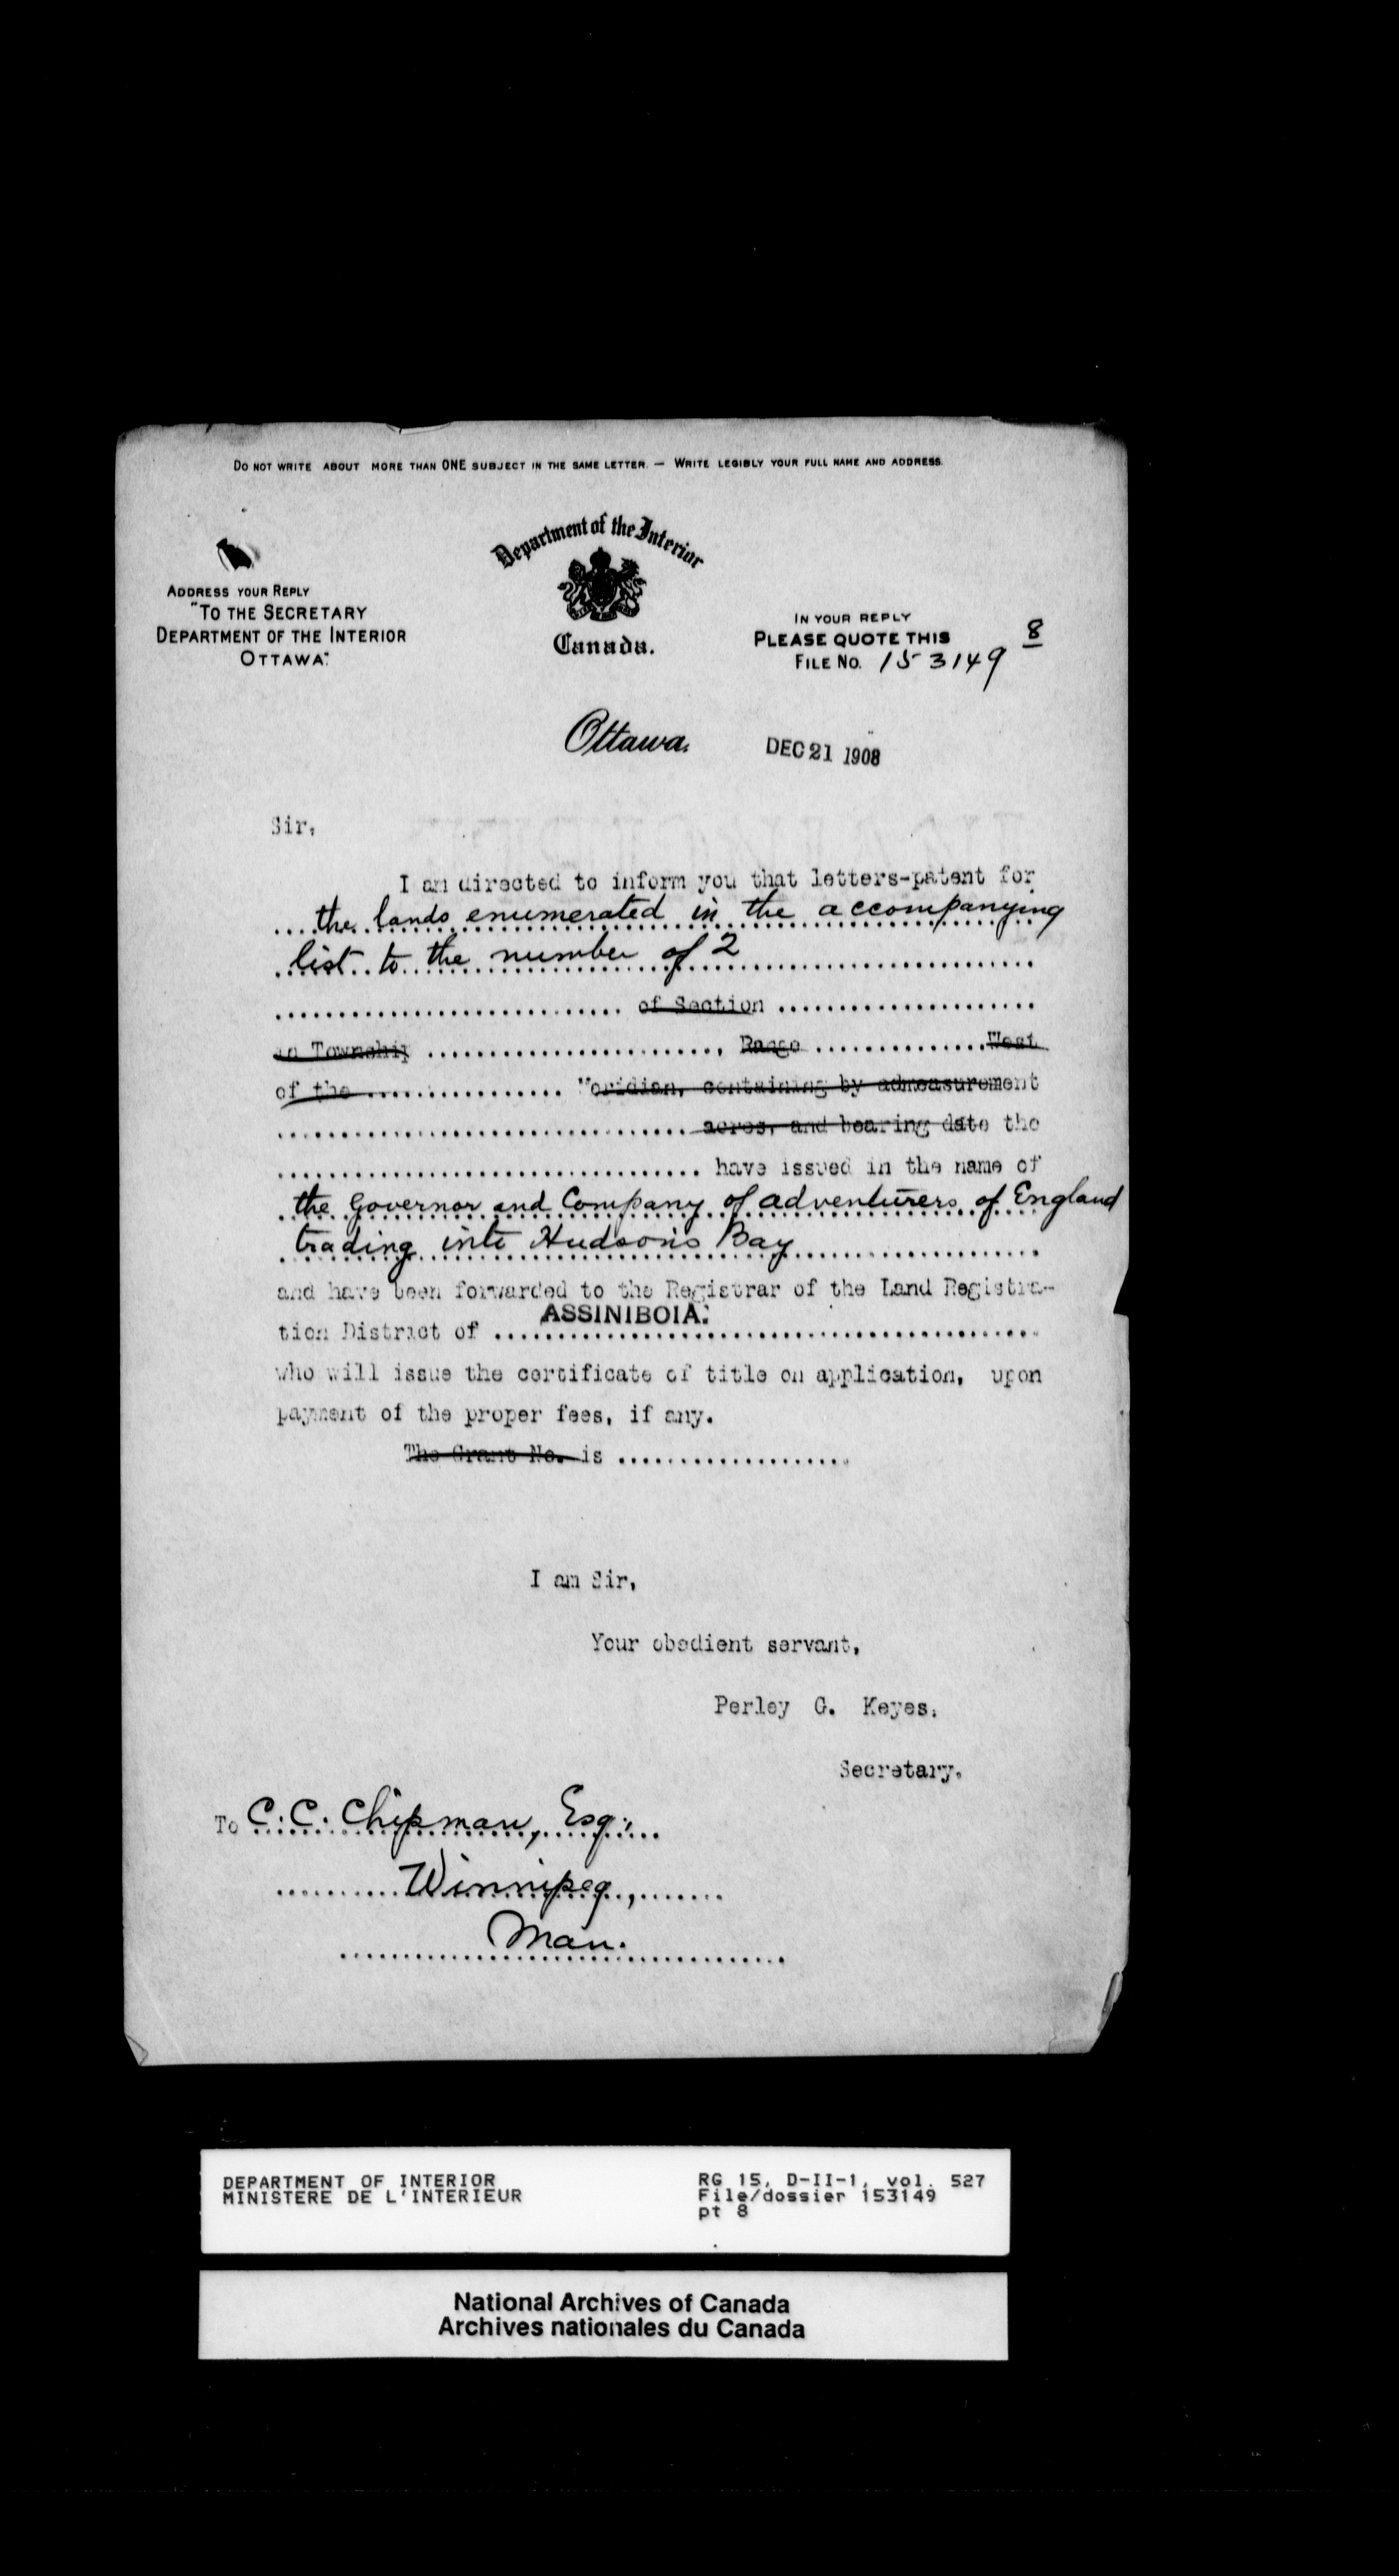 DO NOT WRITE ABOUT MORE THAN ONE SUBJECT IN THE SAME LETTER. — WRITE LEGIBLY YOUR FULL NAME AND ADDRESS.
Department of the Interior
Canada.
ADDRESS YOUR REPLY
"TO THE SECRETARY
DEPARTMENT OF THE INTERIOR
OTTAWA."
IN YOUR REPLY
PLEASE QUOTE THIS
FILE NO. 153149 8
Ottawa. DEC 21 1908
Sir,
I am directed to inform you that letters-patent for
the lands enumerated in the accompanying
list to the number of 2
of Section
in Township , Range West
of the Meridian, containing by admeasurement
acres, and bearing date the
have issued in the name of
the Governor and Company of adventurers of England
trading into Hudson's Bay
and have been forwarded to the Registrar of the Land Registra-
tion District of ASSINIBOIA.
who will issue the certificate of title on application, upon
payment of the proper fees, if any.
The Grant No. is
I am Sir,
Your obedient servant,
Perley G. Keyes,
Secretary.
To C. C. Chipman, Esq.,
Winnipeg,
Man.
DEPARTMENT OF INTERIOR
MINISTERE DE L'INTERIEUR
RG 15, D-II-1, vol. 527
File/dossier 153149
pt 8
National Archives of Canada
Archives nationales du Canada